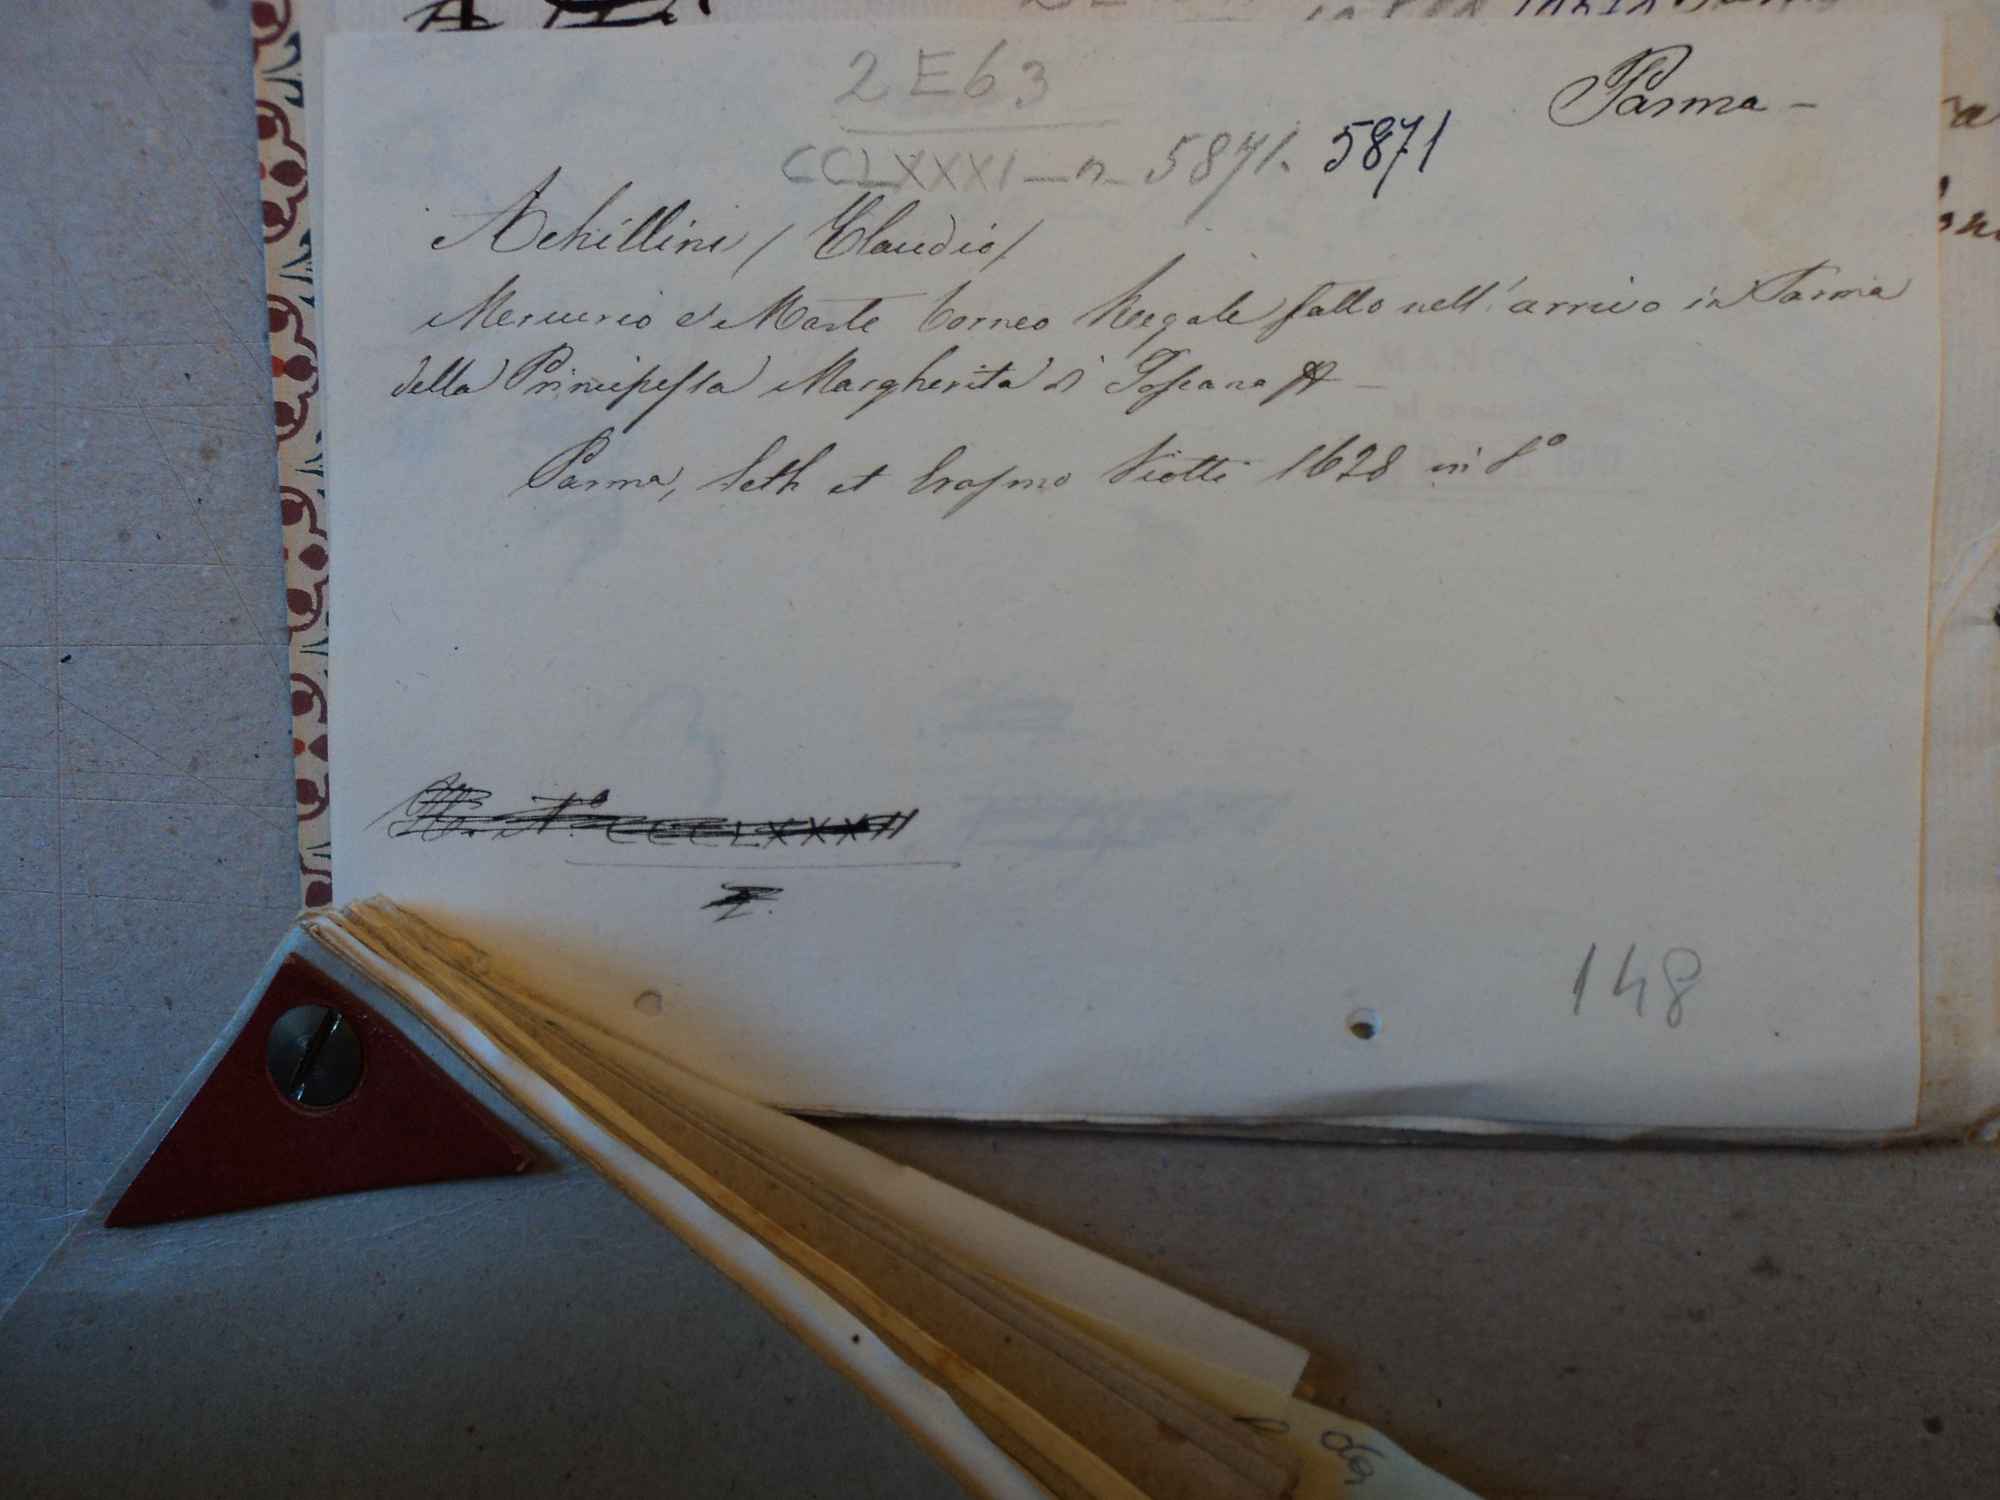 2E63
Parma -
CCLXXXI - n 5871. 5871
Achillini / Claudio /
Mercurio e Marte torneo Regale fatto nell'arrivo in Parma
della Principessa Margherita di Toscana
Parma, Seth et Erasmo Viotti 1628 in 8°
CCCLXXXII
148